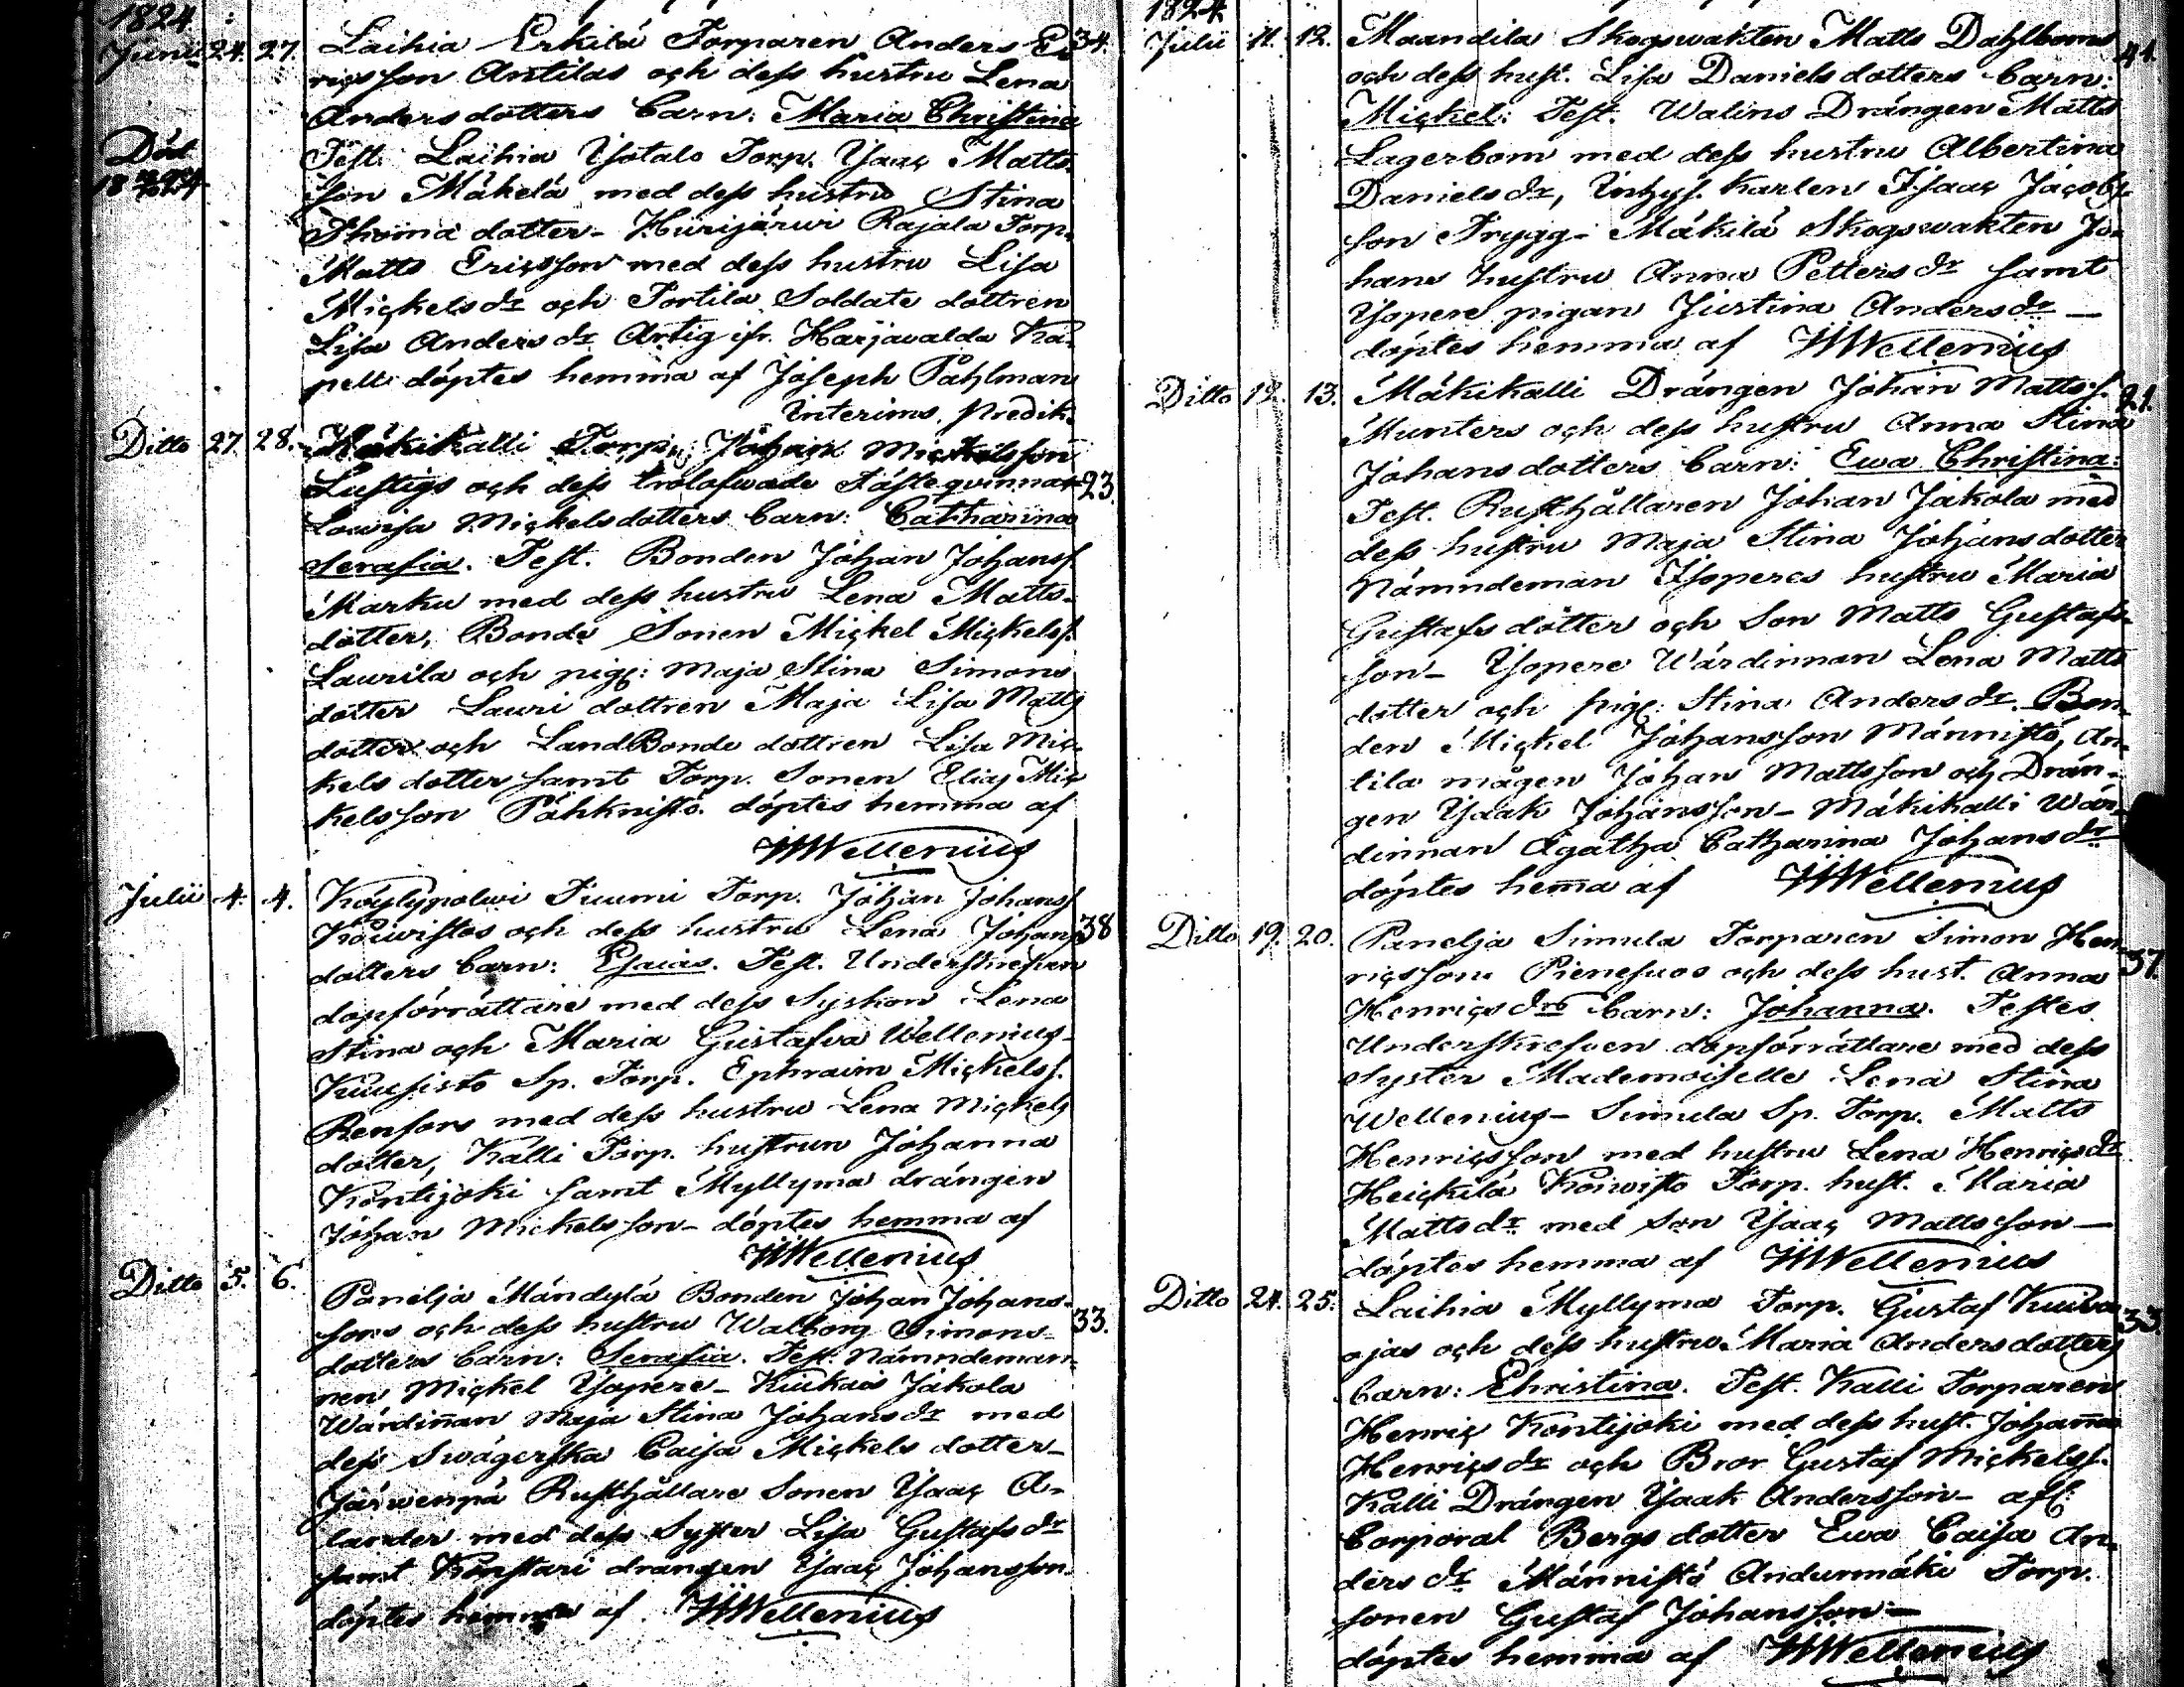 1824
Junii 24. 27. Laihia Erkilä Torparen Anders E- 34.
ricsson Antilas och dess hustru Lena
Andersdotters barn: Maria Christina
Död
18
Test. Laihia Ysotalo Torp. Ysaac Matts-
son Mäkelä med dess hustru Stina
Thomä dotter - Hurijärwi Rajala Torp.
Matts Ericsson med dess hustru Lisa
Mickelsdr och Tortila Soldate dottren
Lisa Andersdr Artig ifr. Harjawalda Ka-
pell döptes hemma af Joseph Påhlman
Interims Predik.
Ditto 27. 28. Mäkikalli Torp. Johan Mickelsson
Lustigs och dess trolofwade Fästeqvinnan 23.
Lowisa Mickelsdotters barn: Catharina
Serafia. Test. Bonden Johan Johanss.
Marku med dess hustru Lena Matts-
dotter, Bonde Sonen Mickel Mickelss.
Laurila och pig: Maja Stina Simons
dotter Lauri dottren Maja Lisa Matts
dotter och LandBonde dottren Lisa Mic-
kels dotter samt Torp. Sonen Elias Mic
kelsson Pähknistö. döptes hemma af
WWellenius
Julii 4. 4.Köylypolwi Tuumi Torp. Johan Johans
Koiwistos och dess hustru Lena Johans 38
dotters barn: Esaias. Test. Underskrefven
dopförrättare med dess Syskon Lena
Stina och Maria Gustafva Wellenius-
Kuusisto Sp. Torp. Ephraim Mickelss.
Renfors med dess hustru Lena Mickels
dotter, Kalli Torp. hustrun Johanna
Kontijoki samt Myllyma drängen
Johan Mickelsson - döptes hemma af
WWellenius
Ditto 5. 6. Panelja Mändylä Bonden Johan Johans-
sons och dess hustru Walborg Simons- 33.
dotters barn: Serafia. Test. Nämndeman-
nen Mickel Ysopere - Kiukais Jakola
Wärdiñan Maja Stina Johansdr med
dess Swägerska Caisa Mickels dotter -
Järwenpä Rusthållare Sonen Ysaac A-
lander med dess Syster Lisa Gustafsdr
samt Konstari drangen Ysaac Johansson
döptes hemma af WWellenius
1824
Julii 11. 12. Maandila Skogswakten Matts Dahlboms 41.
och dess hust. Lisa Daniels dotters barn:
Mickel: Test. Walins Drängen Matts
Lagerbom med dess hustru Albertina
Danielsdr, Inhys. karlen Isaac Jacobs-
son Trygg - Mäkilä Skogswakten Jo-
hans hustru Anna Pettersdr samt
Ysopere pigan Justina Andersdr -
döptes hemma af WWellenius
Ditto 12. 13. Mäkikalli Drängen Johan Mattss. 21.
Munters och dess hustru Anna Stina
Johansdotters barn: Ewa Christina:
Test. Rusthållaren Johan Jakola med
dess hustru Maja Stina Johans dotter
Nämndeman Ysoperes hustru Maria
Gustafs dotter och Son Matts Gustafs-
son - Ysopere Wärdinnan Lena Matts
dotter och pig: Stina Andersdr. Bon-
den Mickel Johansson Männistö, An-
tila mågen Johan Mattsson och Drän-
gen Ysaak Johansson - Mäkikalli Wär-
dinnan Agatha Catharina Johansdr
döptes hem̃a af WWellenius
Ditto 19. 20. Panelja Simula Torparen Simon Hen-
ricssons Pienesuos och dess hust. Anna 37.
Henricsdrs barn: Johanna. Testes
Underskrefven dopförrättare med dess
Syster Mademoiselle Lena Stina
Wellenius - Simula Sp. Torp. Matts
Henricsson med hustru Lena Henricsdr
Heickilä Koiwisto Torp. hust. Maria
Mattsdr med son Ysaac Mattsson -
döptes hemma af WWellenius
Ditto 24. 25. Laihia Myllyma Torp. Gustaf Kuiva
ojas och dess hustru Maria Andersdotters 33.
barn: Christina. Test. Kalli Torparen
Henric Kontijoki med dess hust. Johaña
Henricsdr och Bror Gustaf Mickelss.
Kalli Drängen Ysaak Andersson - afl.
Corporal Bergs dotter Ewa Caisa An-
dersdr Männistö Andurmäki Torp.
sonen Gustaf Johansson -
döptes hemma af WWellenius